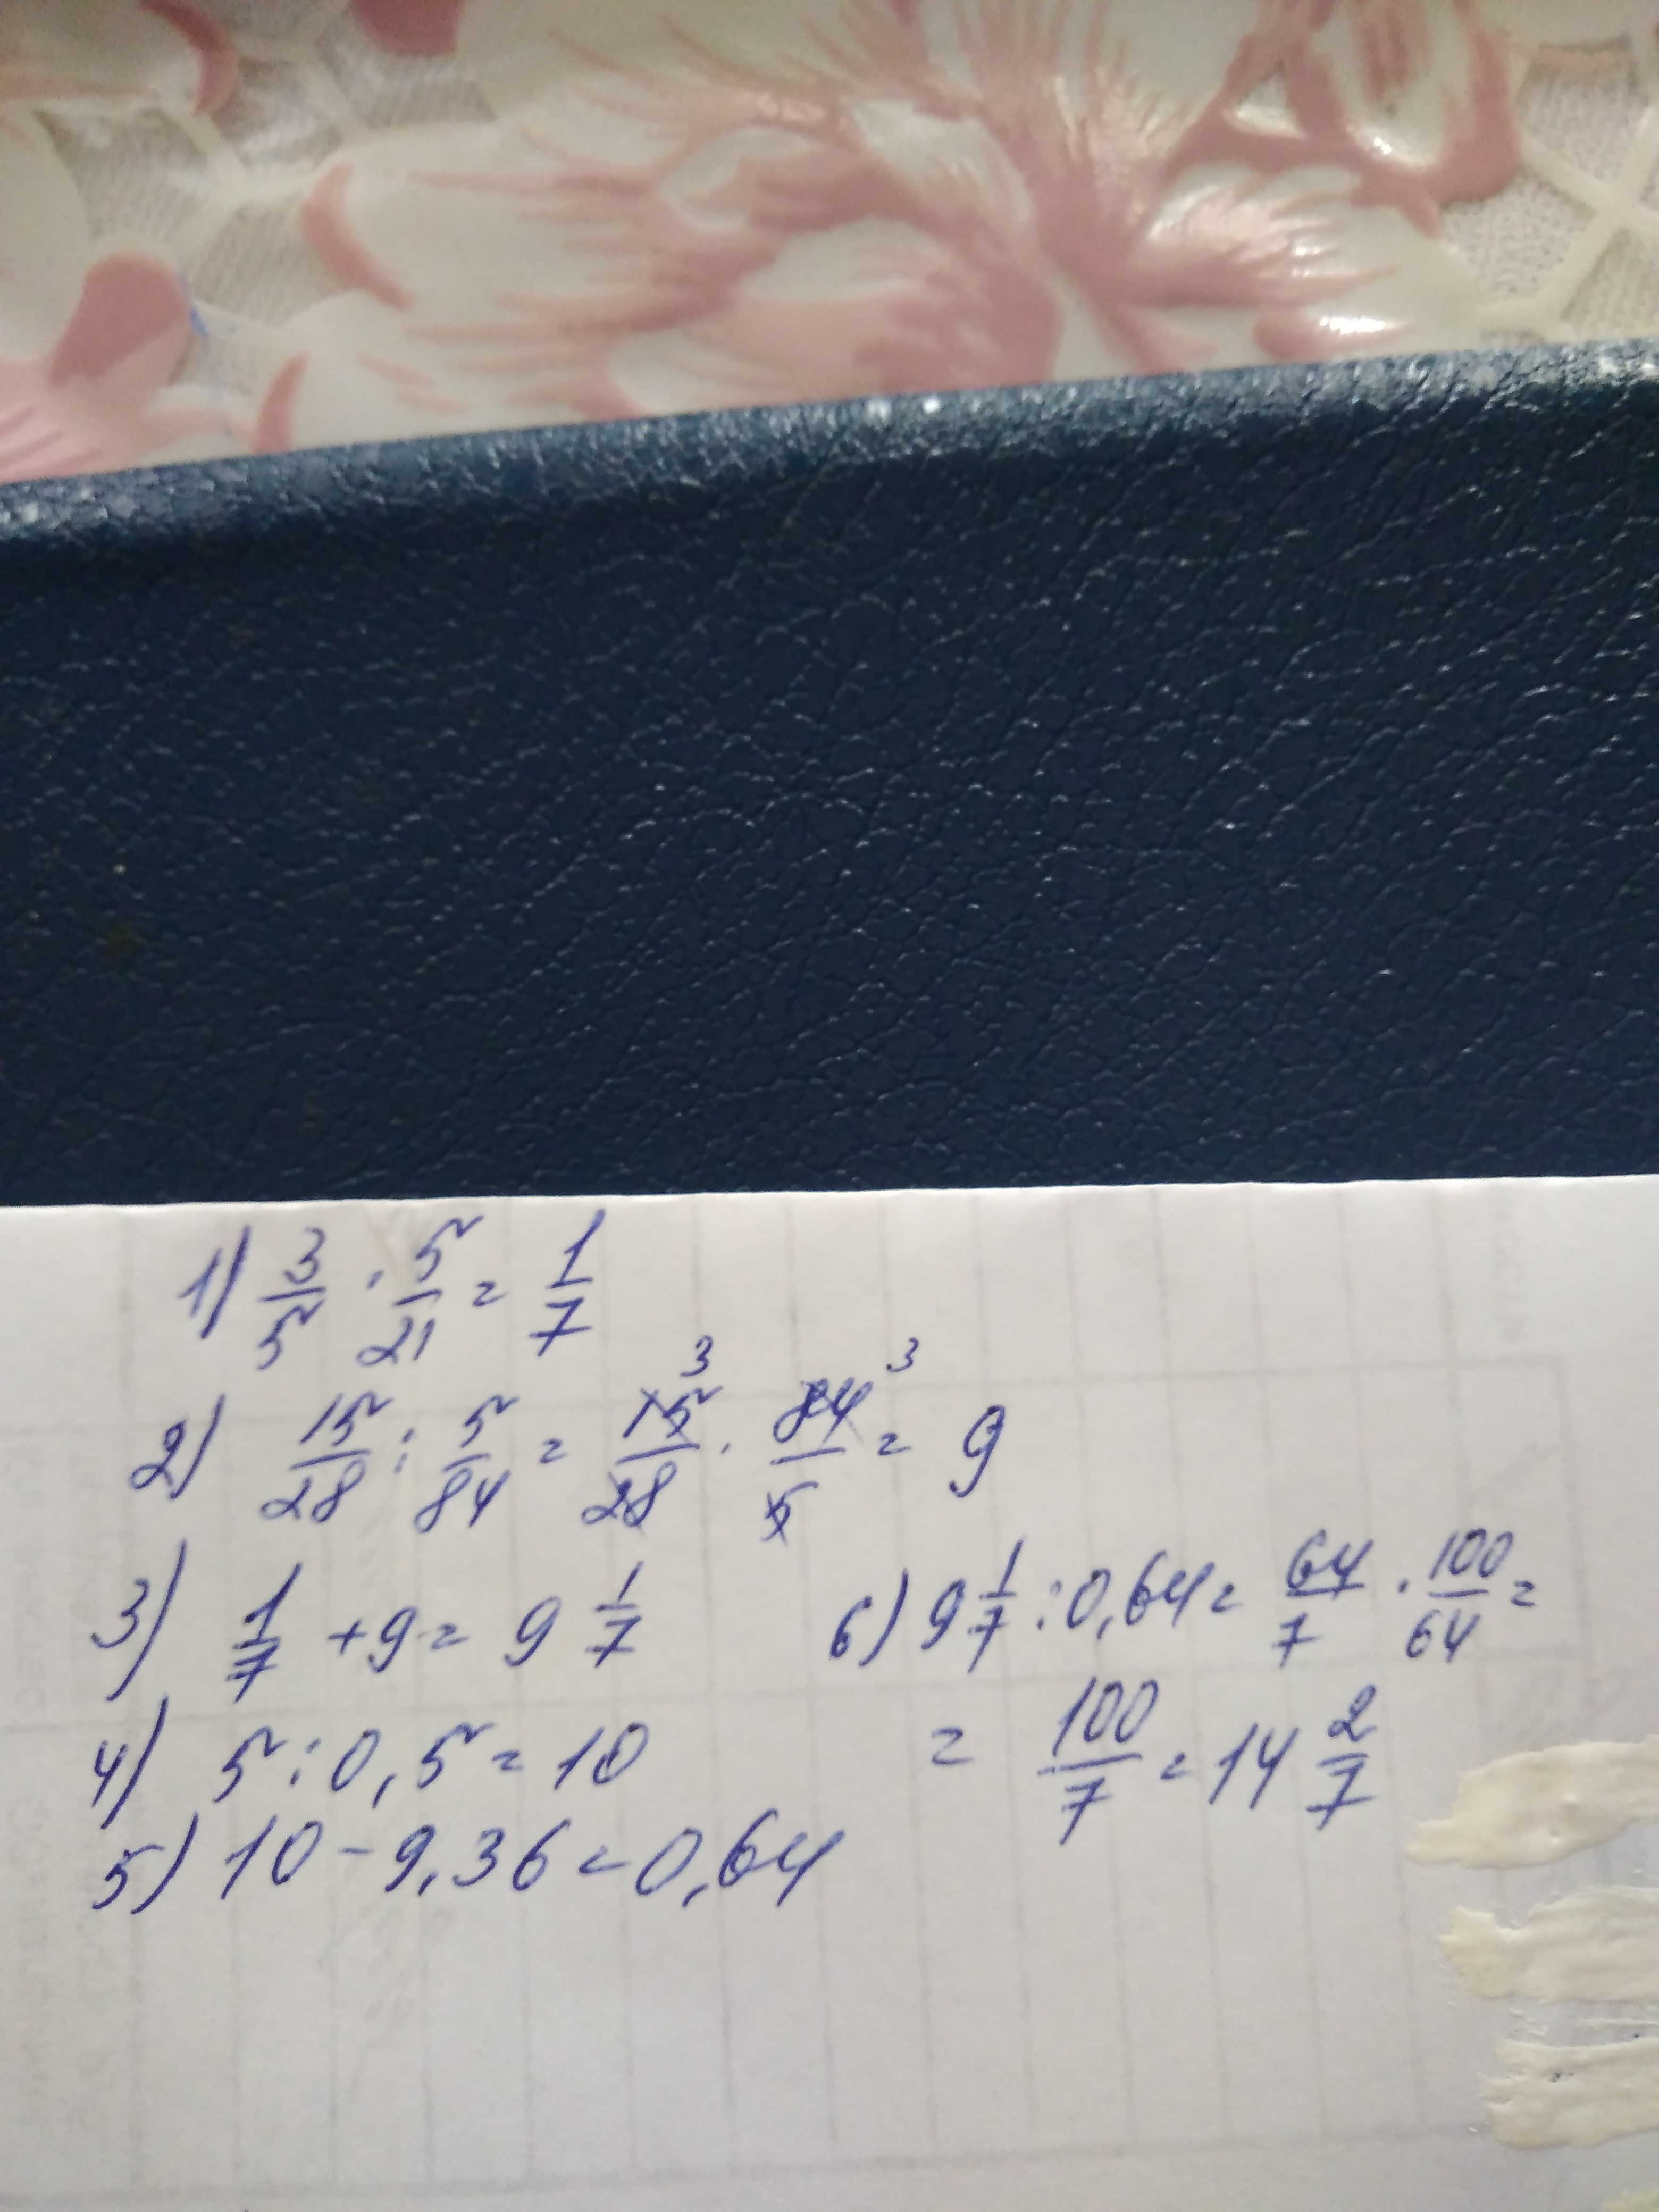 1) 3/5 · 5/21 = 1/7
2) 15/28 : 5/84 = 15³/28 · 84³/5 = 9
3) 1/7 + 9 = 9 1/7
4) 5 : 0,5 = 10
5) 10 - 9,36 = 0,64
6) 9 1/7 : 0,64 = 64/7 · 100/64 =
= 100/7 = 14 2/7